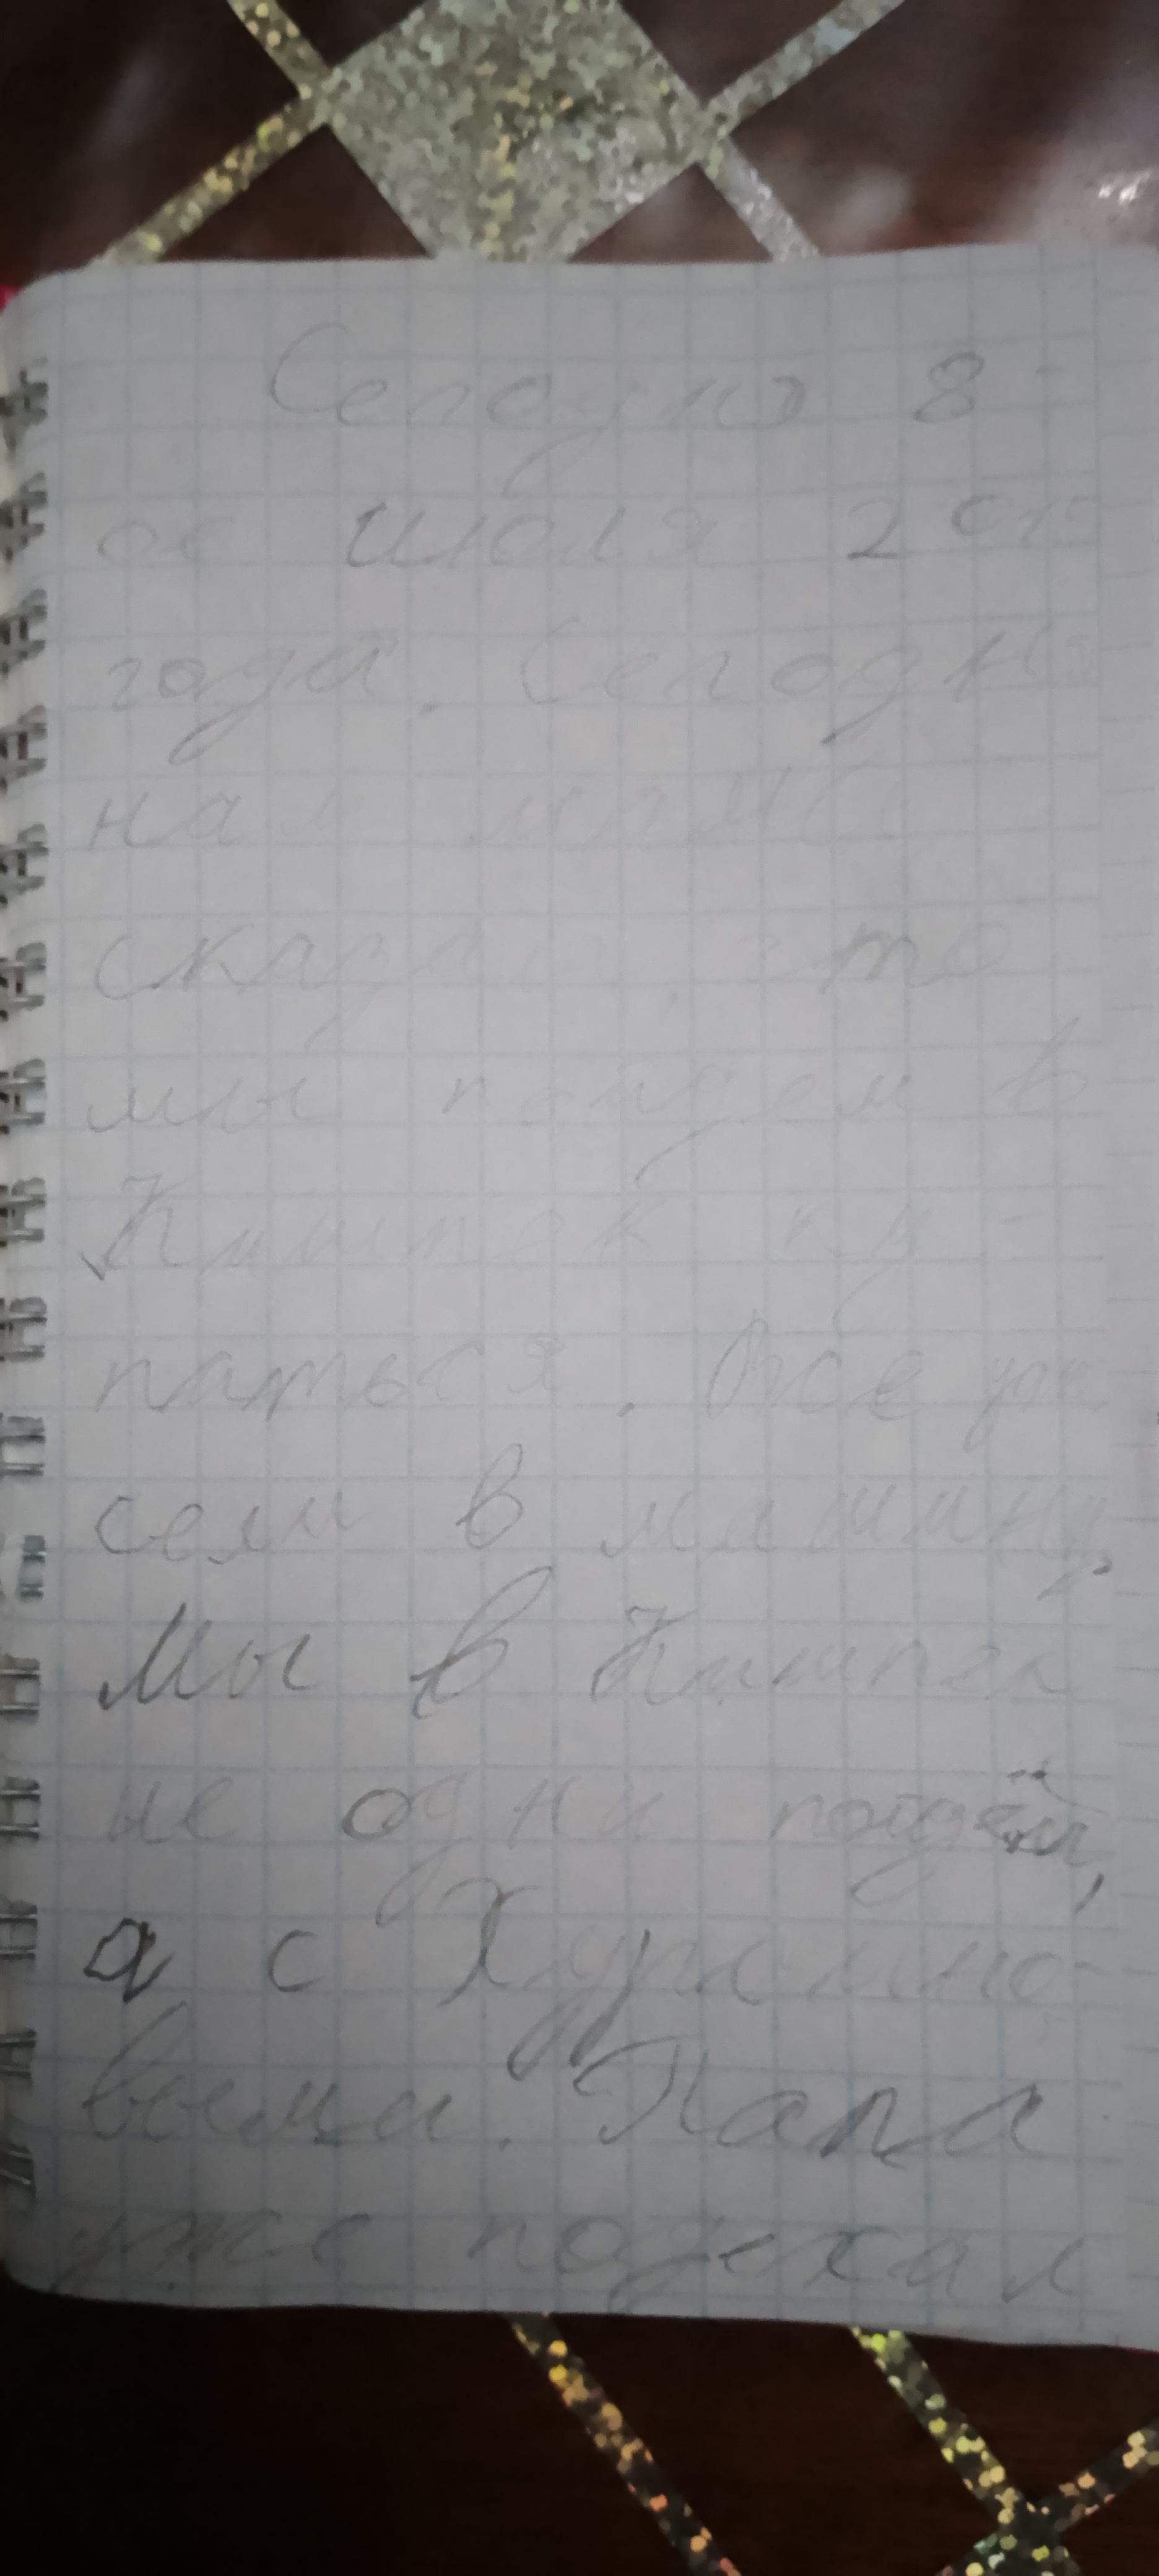 Сегодня 8-
ое июля 2015
года. Сегодня
нам мама
сказала, что
мы пойдем в
Киштек ку-
паться. Все уже
сели в машину.
Мы в Киштек
не одни пойдём,
а с Хурамно-
выми. Папа
уже подехал